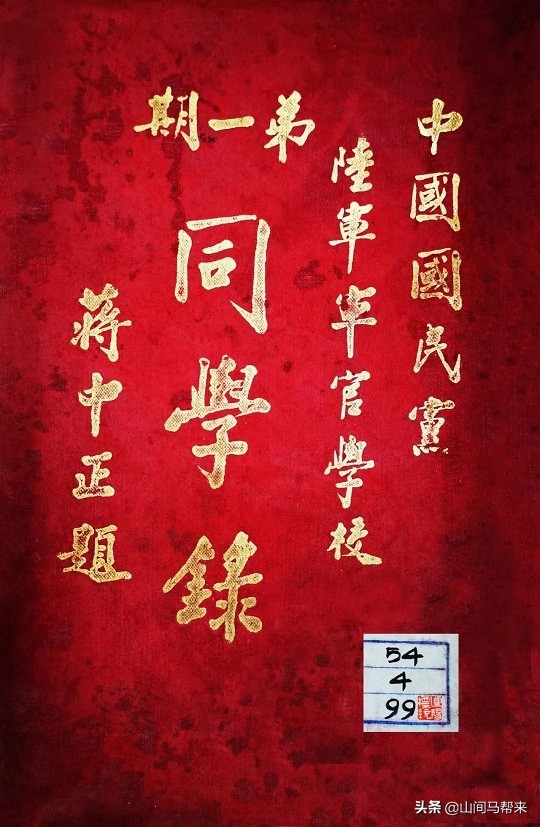 中國國民黨
陸軍軍官學校
弟一期
同學錄
蔣中正題
54
4
99
头条 @山间马帮来